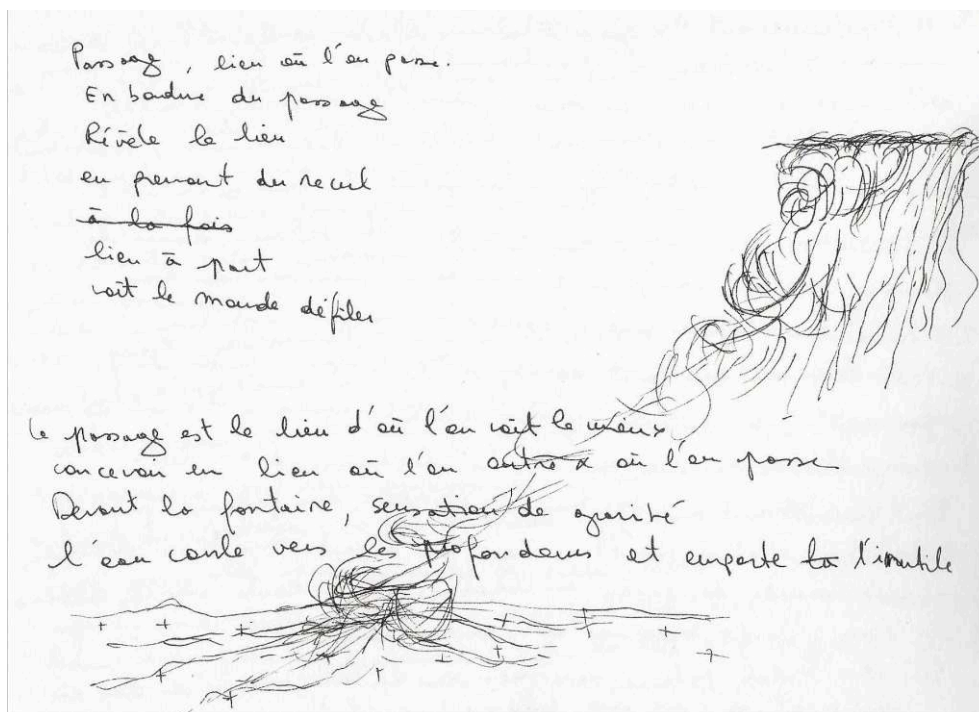 Passage, lieu où l'on passe.
En bordure du passage
Révèle le lieu
en prenant du recul
à la fois
lieu à part
voit le monde défiler
Le passage est le lieu d'où l'on voit le mieux
concevoir un lieu où l'on entre & où l'on passe
Devant la fontaine, sensation de gravité
l'eau coule vers les profondeurs et emporte l'inutile